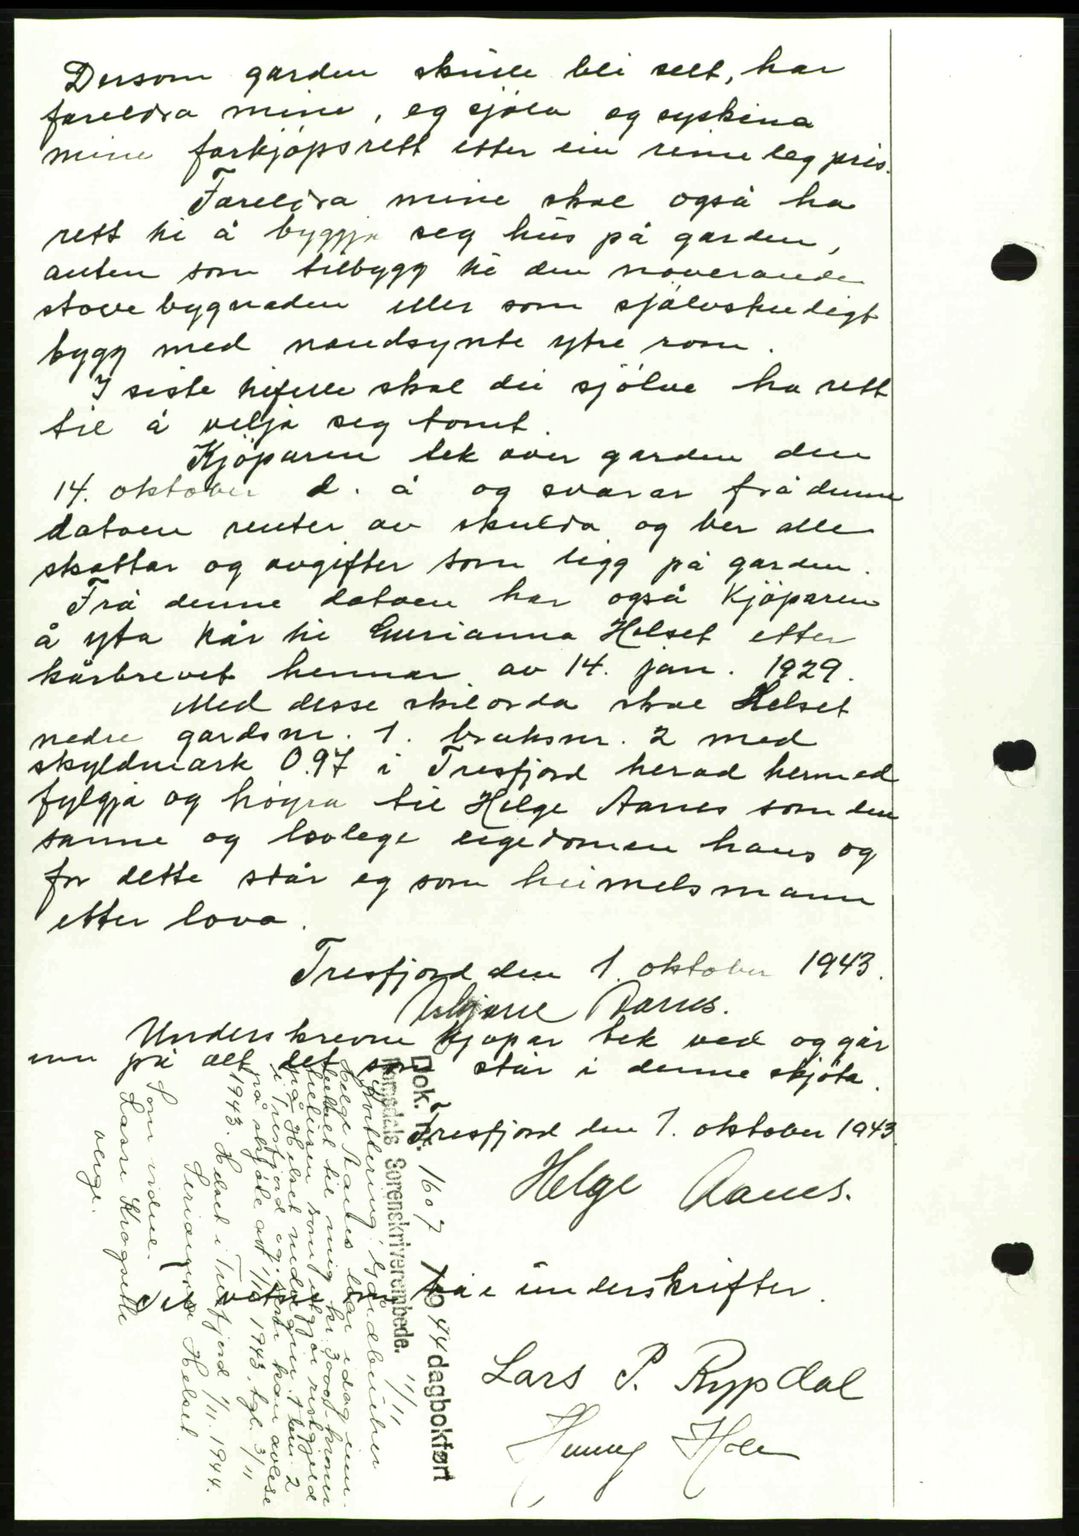 Dersom garden skulle bli selt, har
foreldra mine, eg sjølv og syskina
mine forkjøpsrett etter ein rimeleg pris.
Foreldra mine skal også ha
rett til å byggja seg hus på garden,
anten som tilbygg til den noverande
stovebygnaden eller som sjølvstendigt
bygg med naudsynte ytre rom.
I siste tilfelle skal dei sjølve ha rett
til å velja seg tomt.
Kjöparen tek over garden den
14. oktober d. å og svarar frå denne
datoen renter av skulda og ber alle
skattar og avgifter som ligg på garden.
Frå denne datoen har også Kjöparen
å yta kår til Gurianna Helset etter
kårbrevet hennar av 14. jan. 1929.
Med desse skilorda skal Helset
nedre gardsnr. 1. bruksnr. 2 med
skyldmark 0.97 i Tresfjord herad hermed
fylgja og höyra til Helge Aanes som den
sanne og lovlege eigedomen hans og
for dette står eg som heimelsmann
etter lova.
Tresfjord den 1. oktober 1943.
Aanes.
Underskrevne kjøpar tek ved og går
inn på alt det som står i denne skjöta.
Tresfjord den 1. oktober 1943.
Helge Aanes.
Til vitne om båe underskrifter.
Lars P. Rypdal
Dok. nr. 1607 1944 dagbokført
Romsdals Sorenskriverembede.
11/11
Kvittering: Gardbruker
Helge Aanes har idag inn-
betalt til mig kr. 3000 kroner
på Helset nedre gnr. 1 bnr. 2
i Tresfjord og kan avlese
på skjøte av 1/10 1943, tgl. 3/11
1943. Helset i Tresfjord 1/11. 1944.
Helset.
Som vidne.
Lasse Kragseth
verge.